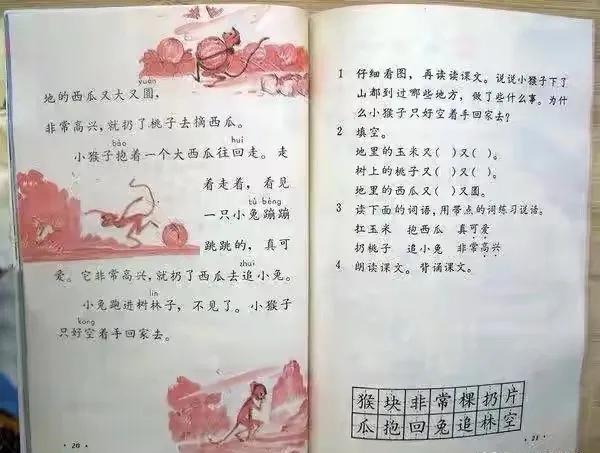 yuán
地的西瓜又大又圆，
非常高兴，就扔了桃子去摘西瓜。
bào huí
小猴子抱着一个大西瓜往回走。走
着走着，看见
tù bèng
一只小兔蹦蹦
跳跳的，真可
zhuī
爱。它非常高兴，就扔了西瓜去追小兔。
lín
小兔跑进树林子，不见了。小猴子
kōng
只好空着手回家去。
· 20 ·
1 仔细看图，再读读课文。说说小猴子下了
山都到过哪些地方，做了些什么事。为什
么小猴子只好空着手回家去？
2 填空。
地里的玉米又( )又( )。
树上的桃子又( )又( )。
地里的西瓜又( )又圆。
3 读下面的词语，用带点的词练习说话。
扛玉米 抱西瓜 真可爱
扔桃子 追小兔 非常高兴
4 朗读课文。背诵课文。
猴块非常棵扔片
瓜抱回兔追林空
· 21 ·